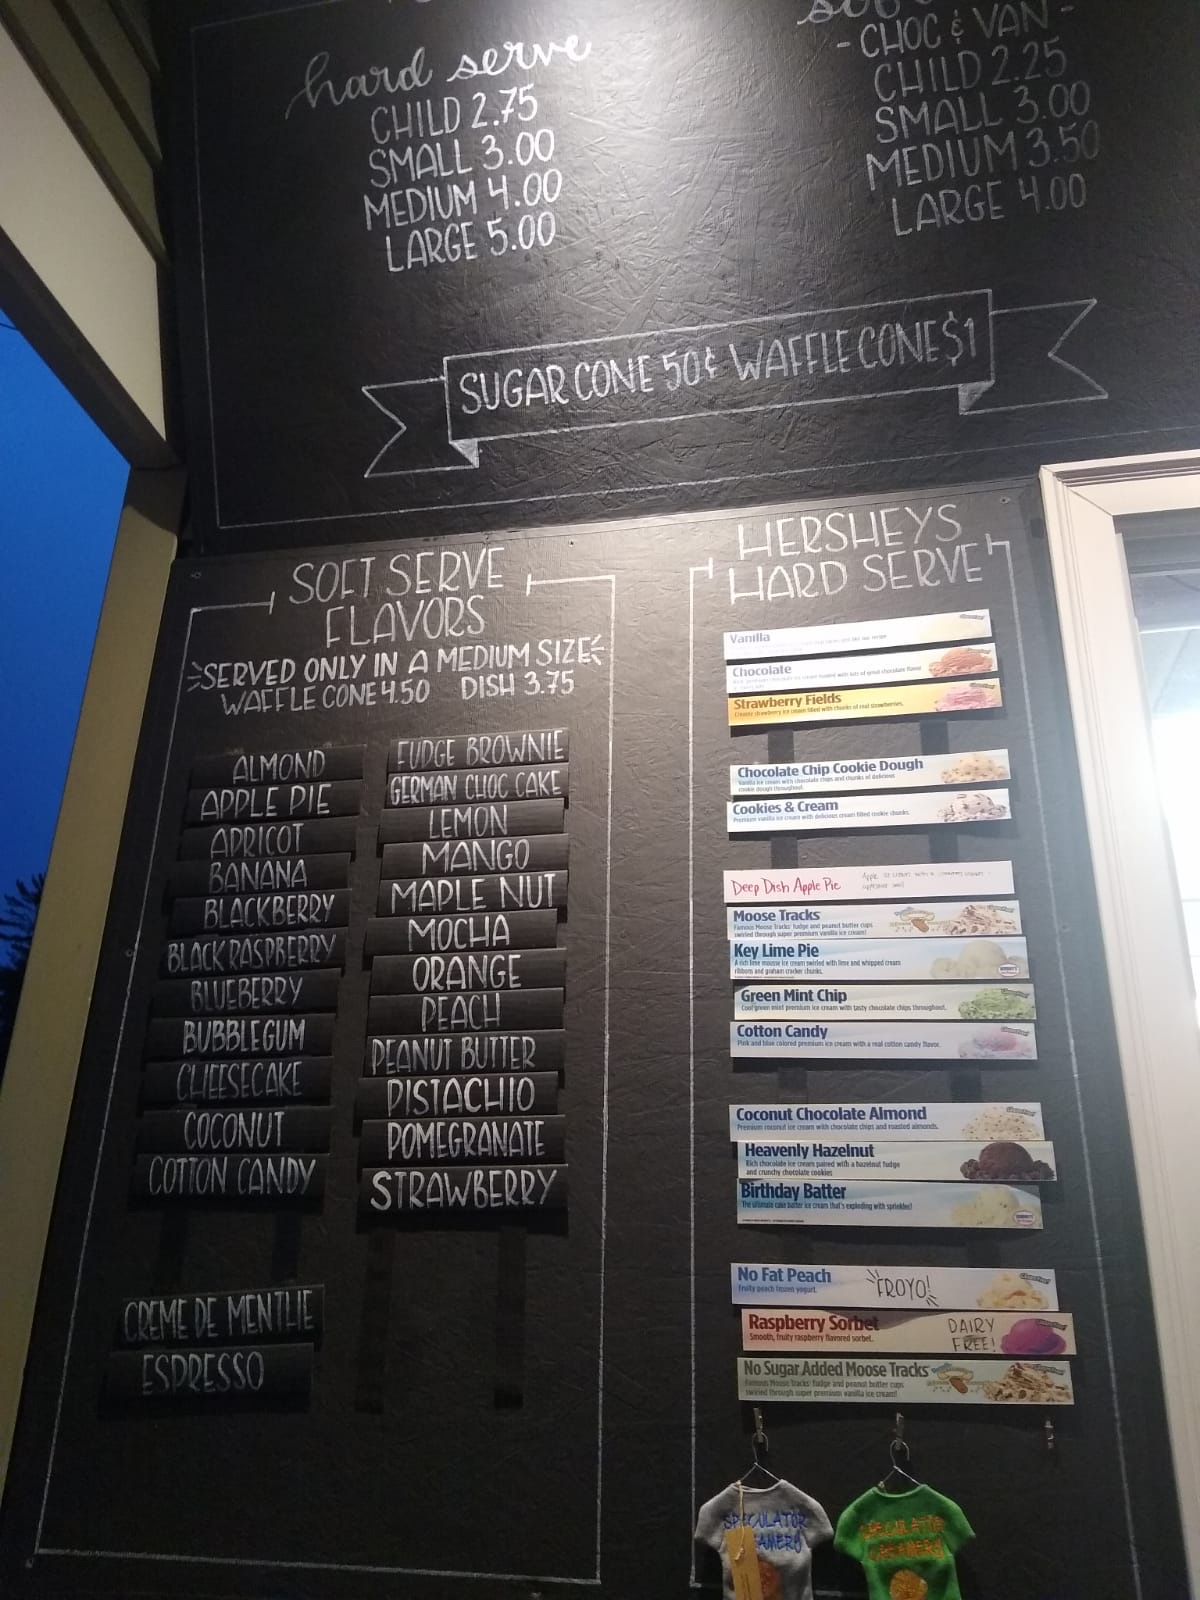 hard serve
CHILD 2.75
SMALL 3.00
MEDIUM 4.00
LARGE 5.00
- CHOC & VAN -
CHILD 2.25
SMALL 3.00
MEDIUM 3.50
LARGE 4.00
SUGAR CONE 50¢ WAFFLE CONE $1
SOFT SERVE
FLAVORS
SERVED ONLY IN A MEDIUM SIZE
WAFFLE CONE 4.50 DISH 3.75
ALMOND
APPLE PIE
APRICOT
BANANA
BLACKBERRY
BLACK RASPBERRY
BLUEBERRY
BUBBLEGUM
CHEESECAKE
COCONUT
COTTON CANDY
CREME DE MENTHE
ESPRESSO
FUDGE BROWNIE
GERMAN CHOC CAKE
LEMON
MANGO
MAPLE NUT
MOCHA
ORANGE
PEACH
PEANUT BUTTER
PISTACHIO
POMEGRANATE
STRAWBERRY
HERSHEYS
HARD SERVE
Vanilla
Chocolate
Strawberry Fields
Creamy strawberry ice cream filled with chunks of real strawberries.
Chocolate Chip Cookie Dough
Vanilla ice cream with chocolate chips and chunks of delicious
cookie dough throughout.
Cookies & Cream
Premium vanilla ice cream with delicious cream filled cookie chunks.
Deep Dish Apple Pie
Moose Tracks
Famous Moose Tracks fudge and peanut butter cups
swirled through super premium vanilla ice cream!
Key Lime Pie
A rich lime mousse ice cream swirled with lime and whipped cream
ribbons and graham cracker chunks.
Green Mint Chip
Cool green mint premium ice cream with tasty chocolate chips throughout.
Cotton Candy
Pink and blue colored premium ice cream with a real cotton candy flavor.
Coconut Chocolate Almond
Premium coconut ice cream with chocolate chips and roasted almonds.
Heavenly Hazelnut
Rich chocolate ice cream paired with a hazelnut fudge
and crunchy chocolate cookies
Birthday Batter
The ultimate cake batter ice cream that's exploding with sprinkles!
No Fat Peach
Fruity peach frozen yogurt.
FROYO!
Raspberry Sorbet
Smooth, fruity raspberry flavored sorbet.
DAIRY
FREE!
No Sugar Added Moose Tracks
Famous Moose Tracks fudge and peanut butter cups
swirled through super premium vanilla ice cream!
SPECULATOR
SPECULATOR
CREAMERY